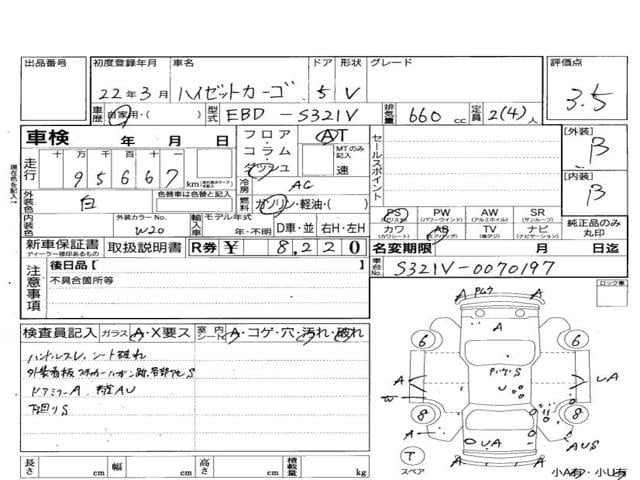 出品番号 初度登録年月 車名 ドア 形状 グレード 評価点
22年3月 ハイゼットカーゴ 5 V 3.5
車歴 自家用・( ) 型式 EBD-S321V 排気量 660 cc 定員 2(4)人
車検 年 月 日 フロア・コラム・ダッシュ AT MTのみ記入 速 セールスポイント 【外装】 B
現在色を記入 走行 十 万 千 百 十 一
95667 km 冷房 AC 【内装】 B
外装色 白 色替車は色替と記入 燃料 ガソリン・軽油・( )
PS PW AW SR
(パワステ) (パワーウインド) (アルミホイル) (サンルーフ)
内装色 外装カラーNo. W20 輸入車 モデル年式 年・不明 D車・並 右H・左H カワ AB TV ナビ 純正品のみ丸印
(カワシート) (エアバッグ) (地デジ) (ナビゲーション)
新車保証書 取扱説明書 R券 ¥ 8,220 名変期限 月 日迄
ディーラー捺印あるもの
車台No. S321V-0070197
注意事項 後日品【 】
不具合箇所等
ロック車
検査員記入 ガラス A・X要ス 室内シート A・コゲ・穴・汚れ・破れ
ハンドルスレ、シート破れ
ドアミラーA
下回りS
A A A
6 6
A A UA
W U
8 8
A UA AUS
T スペア A A
小A有・小U有
長さ cm 幅 cm 高さ cm 積載量 kg